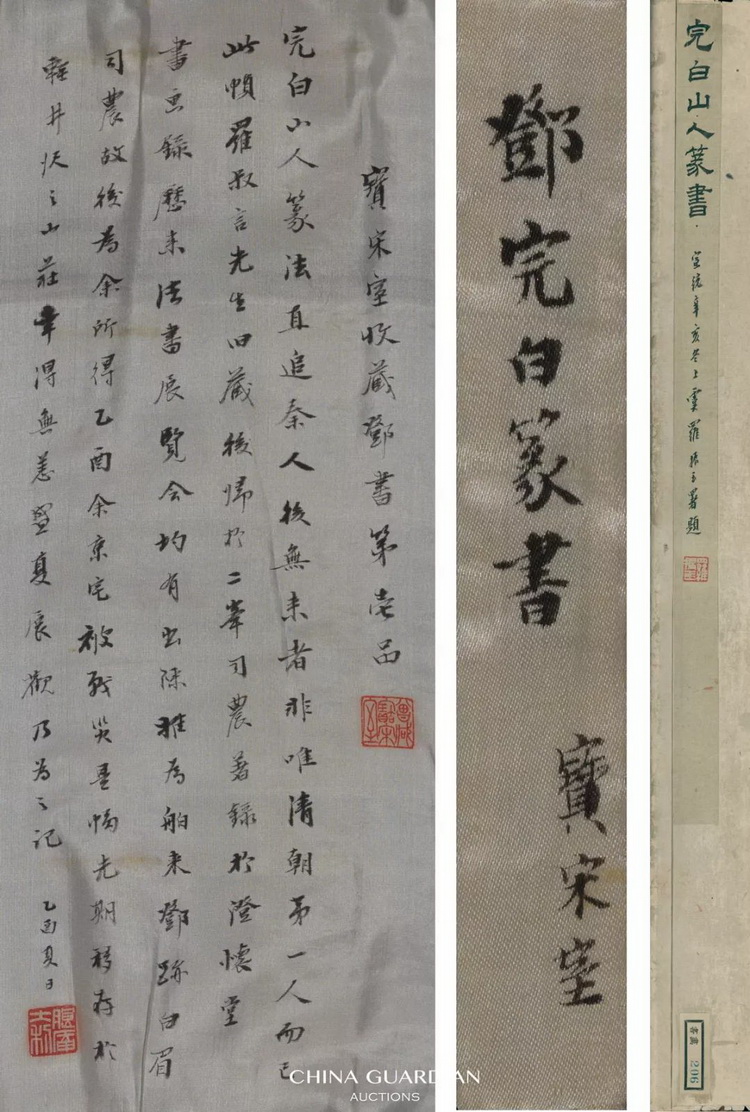 寶宋室收藏鄧書第壱品
完白山人篆法直追秦人後無來者非唯清朝第一人而已
此幀羅叔言先生旧藏後歸於二峯司農著錄於澄懷堂
書画錄歷来法書展覧会均有出陳推為舶来鄧跡白眉
司農故後為余所得乙酉余京宅被戰災是幀先期移存於
輕井沢之山莊幸得無恙盛夏展觀乃為之記
乙酉夏日
鄧完白篆書
寶宋室
完白山人篆書
宣統辛亥冬上虞羅振玉署題
206
CHINA GUARDIAN
AUCTIONS